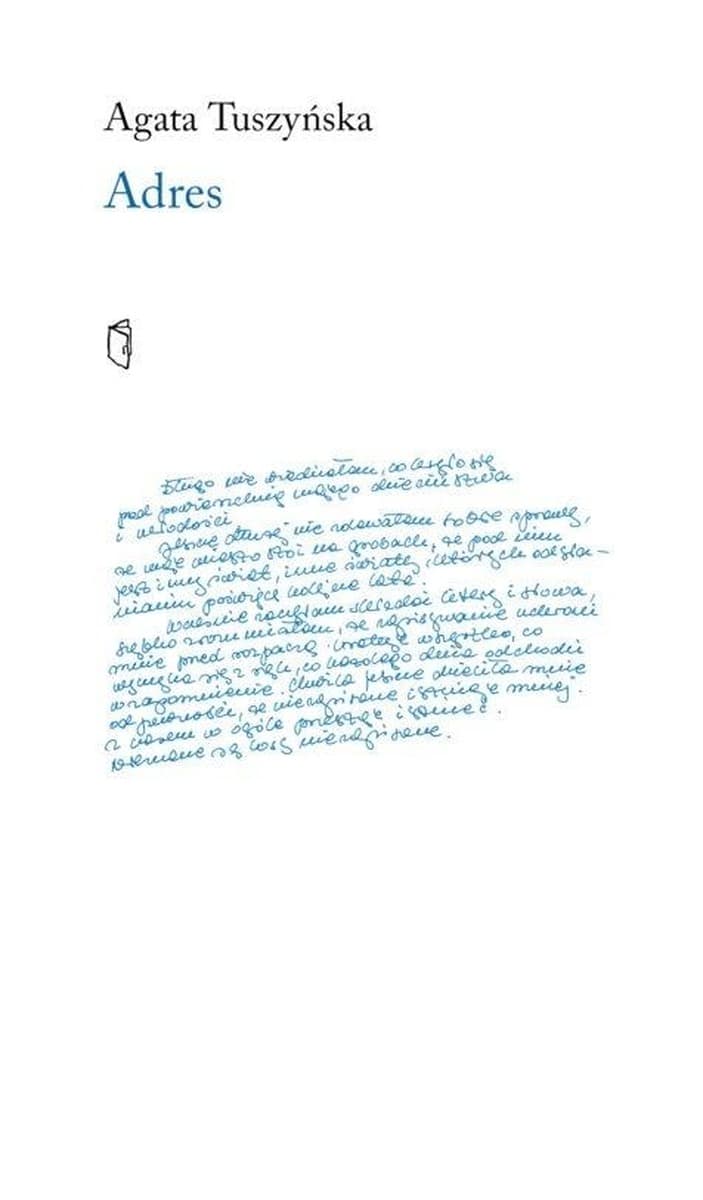 Agata Tuszyńska
Adres
Długo nie wiedziałam, co kryło się
pod powierzchnią mojego dzieciństwa
i młodości
Jeszcze dłużej nie zdawałam sobie sprawy,
że moje miasto stoi na grobach, że pod nim
jest inny świat, inne światy, których odsła-
nianiu poświęcę kolejne lata.
Właśnie zaczęłam składać litery i słowa,
szybko zrozumiałam, że zapisywanie uchroni
mnie przed rozpaczą. Uratuję wszystko, co
wymyka się z rąk, co każdego dnia odchodzi
w zapomnienie. Chwila jeszcze dzieliła mnie
od pewności, że niezapisane istnieje mniej.
Z czasem w ogóle przestaje istnieć.
są losy niezapisane.